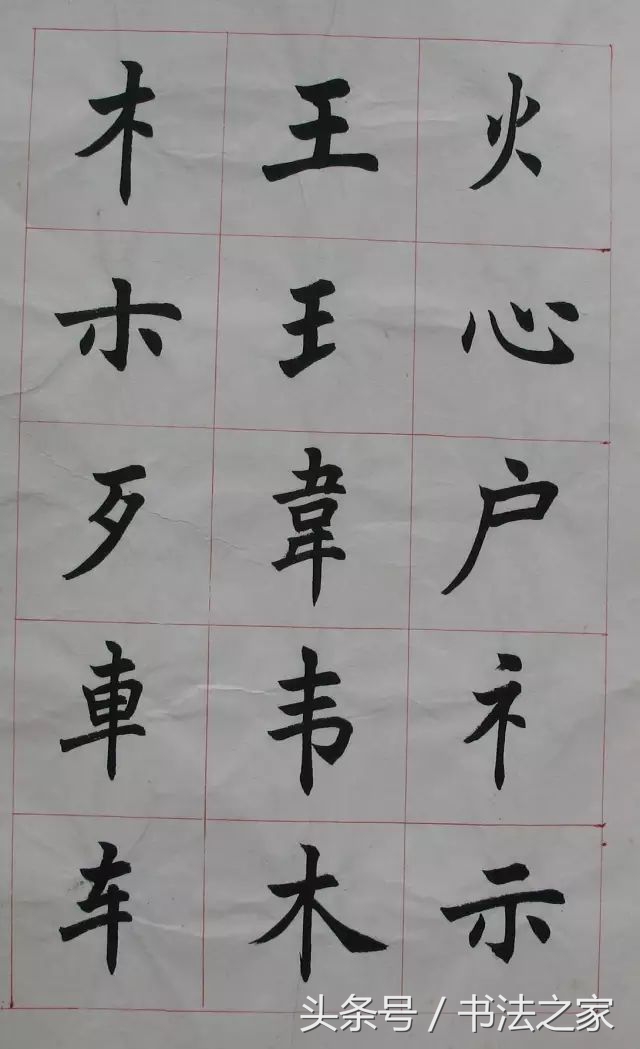 火心户礻示
王王韋韦木
木朩歹車车
头条号 / 书法之家